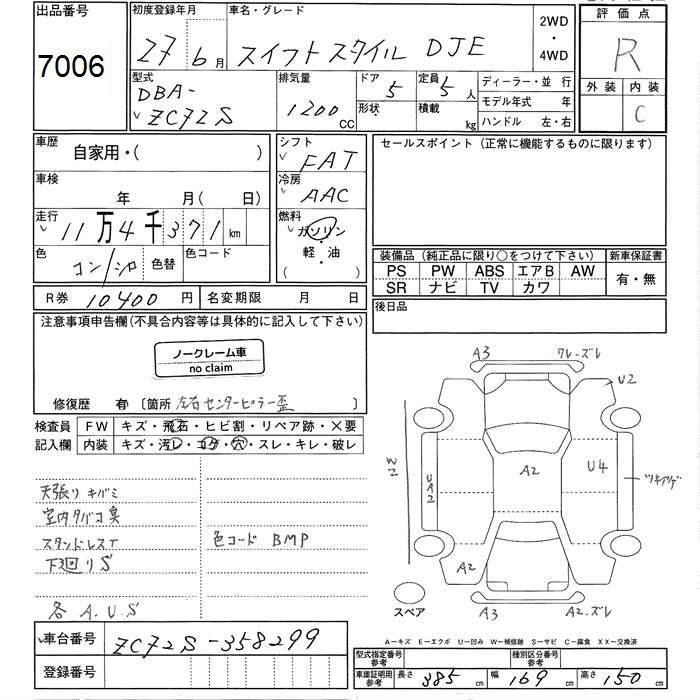 出品番号 初度登録年月 車名・グレード 2WD・4WD 評価点
7006 27年6月 スイフトスタイル DJE R
型式 排気量 ドア 定員 ディーラー・並行 外装 内装
DBA-ZC72S 1200CC 5 5人 モデル年式 年 C
形状 積載 kg ハンドル 左・右
車歴 自家用・( ) シフト FAT セールスポイント (正常に機能するものに限ります)
車検 年 月(日) 冷房 AAC
走行 11万4千371km 燃料 ガソリン・軽・油
色 コン/シロ 色替 色コード
装備品 (純正品に限り○をつけて下さい) 新車保証書
PS PW ABS エアB AW 有・無
SR ナビ TV カワ
R券 10400円 名変期限 月 日 後日品
注意事項申告欄(不具合内容等は具体的に記入して下さい)
ノークレーム車
no claim
修復歴 有 〔箇所 左右センターピラー歪 〕
検査員 FW キズ・飛石・ヒビ割・リペア跡・X要
記入欄 内装 キズ・汚レ・コゲ・穴・スレ・キレ・破レ
天張りキバミ
室内タバコ臭
スタンドレスT 色コード BMP
下廻りS
各 A.U.S
A3 ワレ・ズレ
U2
W2 UA2 A2 U4 ツキアゲ
A2
スペア A3 A2.ズレ
A―キズ E―エクボ U―凹み W―補修跡 S―サビ C―腐食 XX―交換済
車台番号 ZC72S-358299
登録番号
型式指定番号 参考 種別区分番号 参考
車庫証明用 参考 長さ 385cm 幅 169cm 高さ 150cm